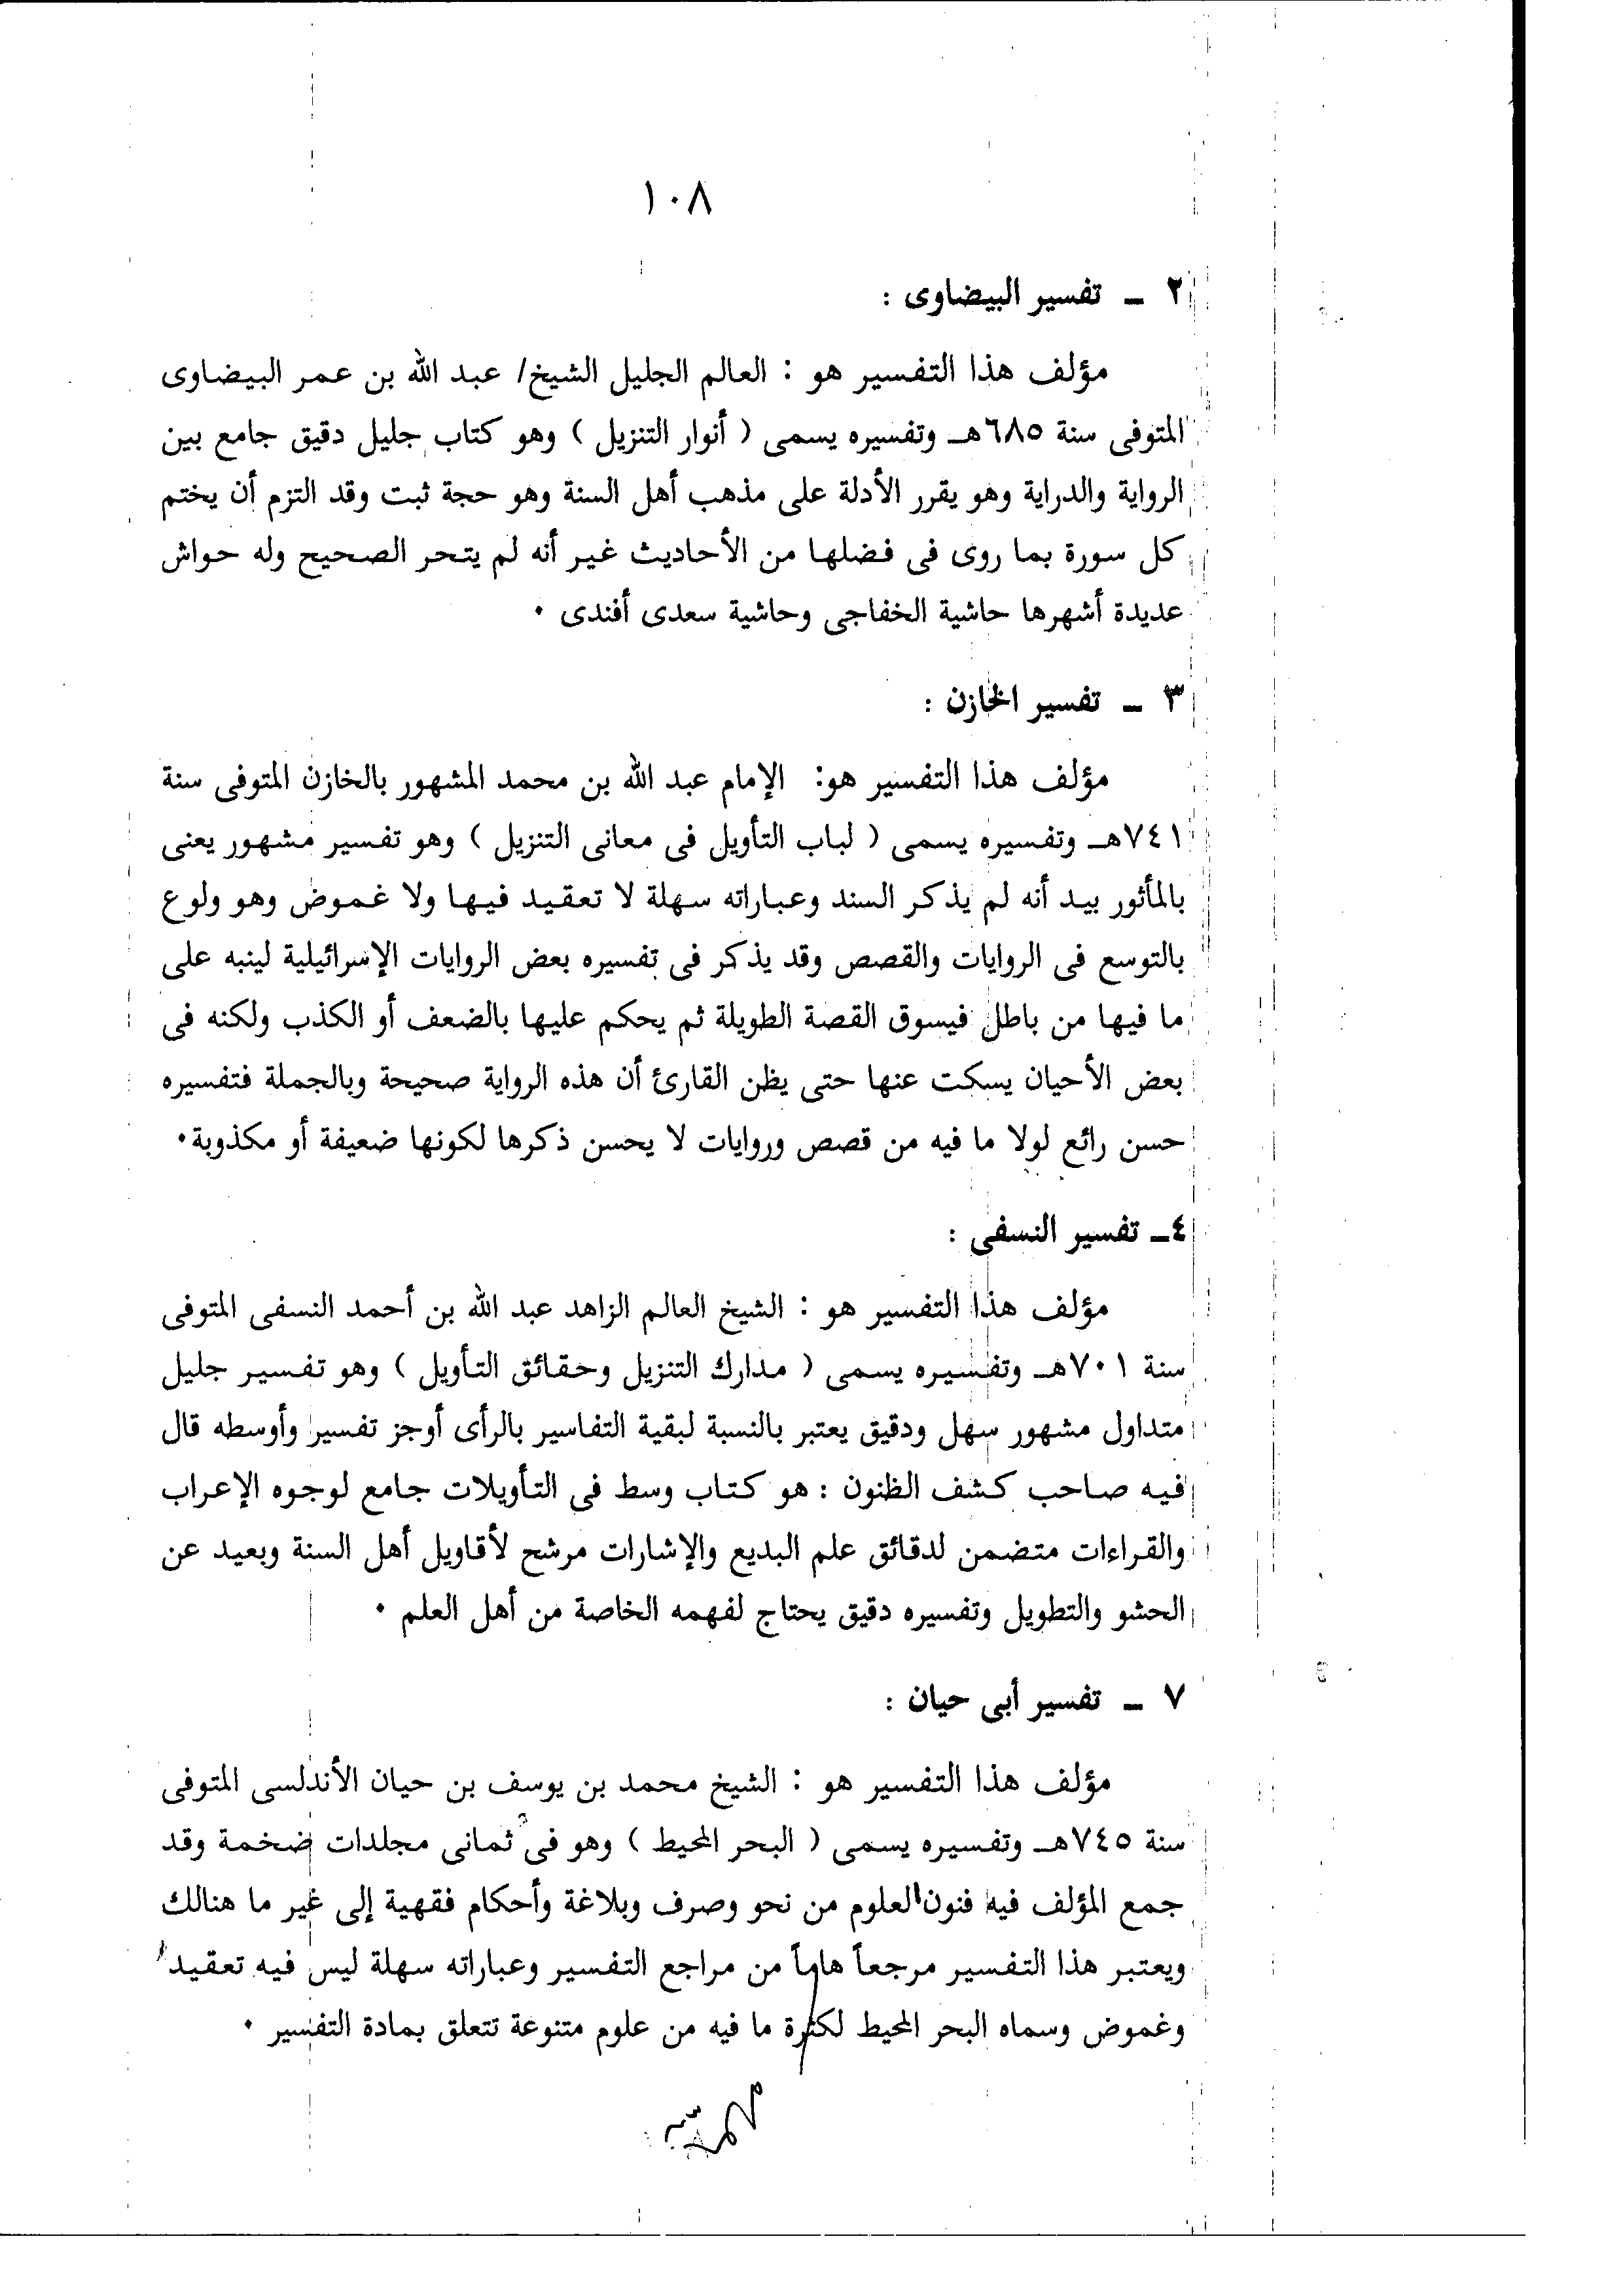 ١٠٨
٢ ـ تفسير البيضاوى :
مؤلف هذا التفسير هو : العالم الجليل الشيخ/ عبد الله بن عمر البيضاوى
المتوفى سنة ٦٨٥هـ وتفسيره يسمى ( أنوار التنزيل ) وهو كتاب جليل دقيق جامع بين
الرواية والدراية وهو يقرر الأدلة على مذهب أهل السنة وهو حجة ثبت وقد التزم أن يختم
كل سورة بما روى فى فضلها من الأحاديث غير أنه لم يتحر الصحيح وله حواش
عديدة أشهرها حاشية الخفاجى وحاشية سعدى أفندى ٠
٣ ـ تفسير الخازن :
مؤلف هذا التفسير هو: الإمام عبد الله بن محمد المشهور بالخازن المتوفى سنة
٧٤١هـ وتفسيره يسمى ( لباب التأويل فى معانى التنزيل ) وهو تفسير مشهور يعنى
بالمأثور بيد أنه لم يذكر السند وعباراته سهلة لا تعقيد فيها ولا غموض وهو ولوع
بالتوسع فى الروايات والقصص وقد يذكر فى تفسيره بعض الروايات الإسرائيلية لينبه على
ما فيها من باطل فيسوق القصة الطويلة ثم يحكم عليها بالضعف أو الكذب ولكنه فى
بعض الأحيان يسكت عنها حتى يظن القارئ أن هذه الرواية صحيحة وبالجملة فتفسيره
حسن رائع لولا ما فيه من قصص وروايات لا يحسن ذكرها لكونها ضعيفة أو مكذوبة٠
٤ـ تفسير النسفى :
مؤلف هذا التفسير هو : الشيخ العالم الزاهد عبد الله بن أحمد النسفى المتوفى
سنة ٧٠١هـ وتفسيره يسمى ( مدارك التنزيل وحقائق التأويل ) وهو تفسير جليل
متداول مشهور سهل ودقيق يعتبر بالنسبة لبقية التفاسير بالرأى أوجز تفسير وأوسطه قال
فيه صاحب كشف الظنون : هو كتاب وسط فى التأويلات جامع لوجوه الإعراب
والقراءات متضمن لدقائق علم البديع والإشارات مرشح لأقاويل أهل السنة وبعيد عن
الحشو والتطويل وتفسيره دقيق يحتاج لفهمه الخاصة من أهل العلم ٠
٧ ـ تفسير أبى حيان :
مؤلف هذا التفسير هو : الشيخ محمد بن يوسف بن حيان الأندلسى المتوفى
سنة ٧٤٥هـ وتفسيره يسمى ( البحر المحيط ) وهو فى ثمانى مجلدات ضخمة وقد
جمع المؤلف فيه فنون العلوم من نحو وصرف وبلاغة وأحكام فقهية إلى غير ما هنالك
ويعتبر هذا التفسير مرجعاً هاماً من مراجع التفسير وعباراته سهلة ليس فيه تعقيد
وغموض وسماه البحر المحيط لكثرة ما فيه من علوم متنوعة تتعلق بمادة التفسير ٠